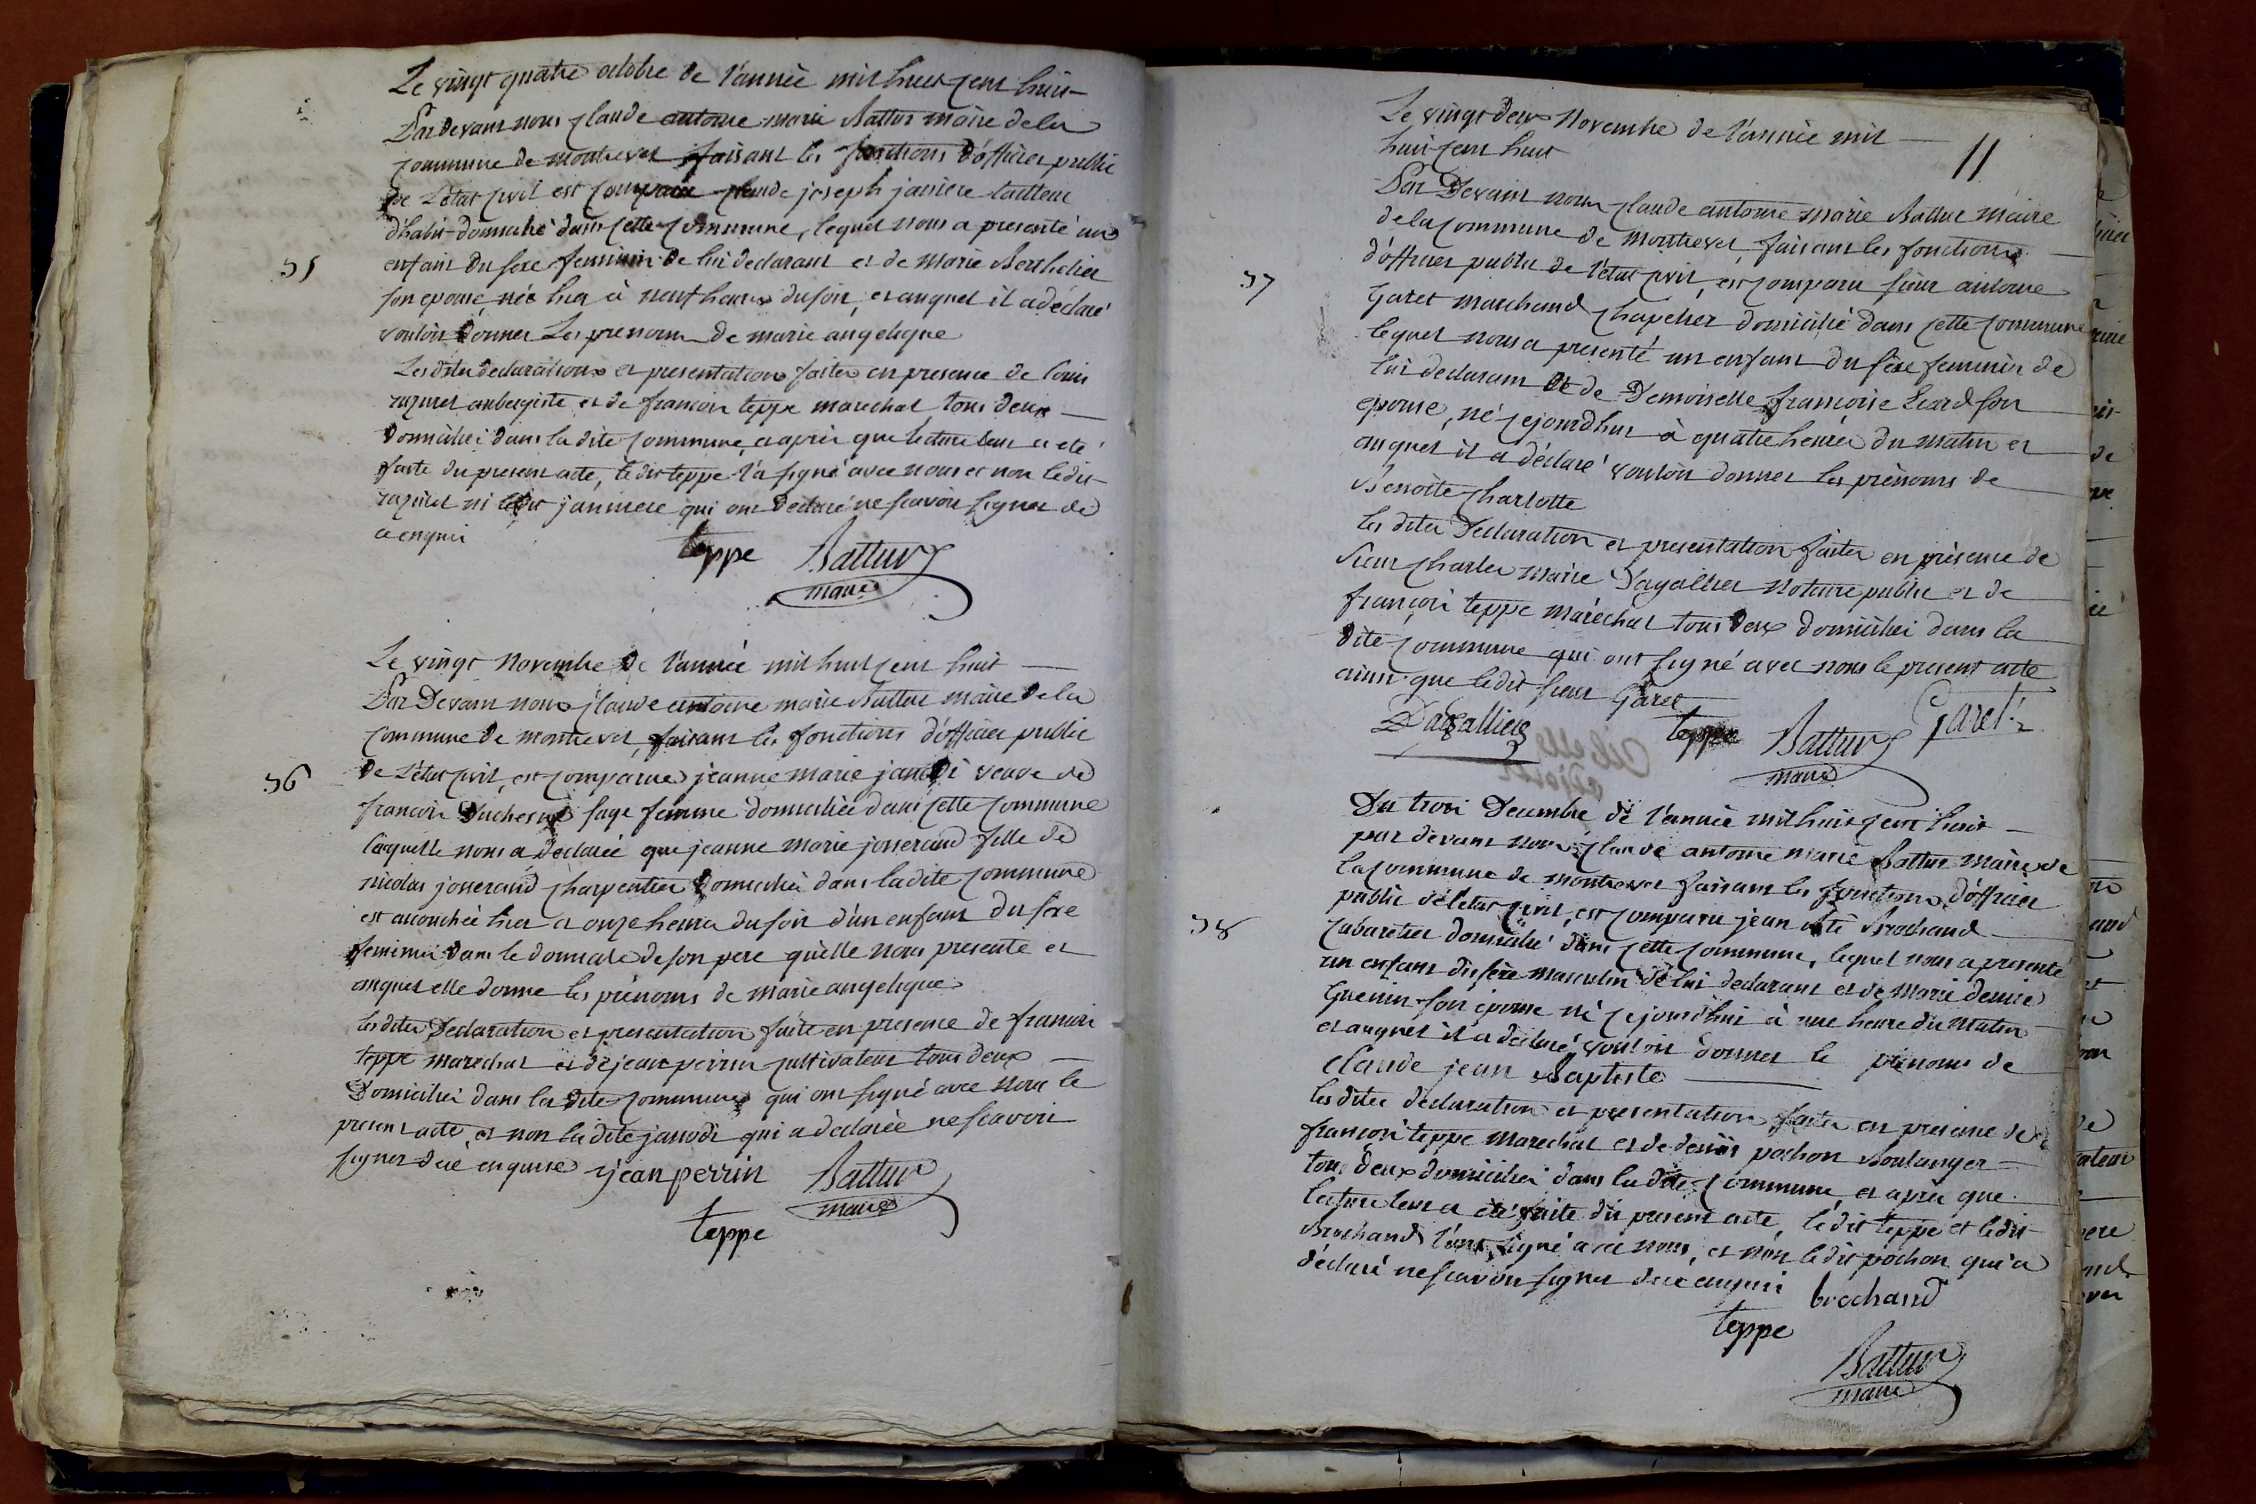 Le vingt quatre octobre de l'année mil huit cent huit
Par devant nous claude antoine marie Battur maire de la
commune de montrevel faisant les fonctions d'officier public
de l'état civil est comparu claude joseph janiere tailleur
d'habit domicilié dans cette commune, lequel nous a presenté un
enfant du sexe feminin de lui declarant et de marie Berthelier
35
son epouse, née hier à neuf heures du soir, et auquel il a déclaré
vouloir donner Les prenoms de marie angelique
Les dites declarations et presentations faites en presence de louis
aubergiste et de francois teppe marechal tous deux
domiciliés dans la dite commune, et après que lecture leur a été
faite du present acte, le dit teppe l'a signé avec nous et non le dit
ni le dit janniere qui ont declaré ne scavoir signer de
ce enquis
teppe Battur
maire
Le vingt novembre de l'année mil huit cent huit
Par Devant nous claude antoine marie Battur maire de la
commune de montrevel, faisant les fonctions d'officier public
36
de l'état civil, est comparue jeanne marie janodi veuve de
francois Duchesne sage femme domiciliée dans cette commune
laquelle nous a declarée que jeanne marie josserand fille de
nicolas josserand charpentier domicilié dans la dite commune
est accouchée hier a onze heures du soir d'un enfant du sexe
feminin dans le domicile de son pere qu'elle nous presente et
auquel elle donne les prénoms de marie angelique
les dites Declaration et presentation faite en presence de francois
teppe marechal et de jean perrin cultivateur tous deux
Domiciliés dans la dite commune qui ont signé avec nous le
present acte, et non la dite janodi qui a declarée ne scavoir
signer de ce enquise jean perrin Battur
maire
teppe
Le vingt deux Novembre de l'année mil
huit cent huit
11
Par Devant nous claude antoine marie Battur maire
de la commune de montrevel, faisant les fonctions
d'officier public de l'état civil, est comparu sieur antoine
37
Garet marchand chapelier domicilié dans cette commune
lequel nous a presenté un enfant du sexe feminin de
lui declarant et de Demoiselle francoise Picard son
epouse, né cejourdhui à quatre heures du matin et
auquel il a déclaré vouloir donner les prénoms de
Benoite charlotte
les dites Declaration et presentation faites en présence de
sieur charles marie Dagallier notaire public et de
françois teppe maréchal tous deux domiciliés dans la
dite commune qui ont signé avec nous le present acte
ainsi que le dit sieur Garet
Dagallier teppe Battur Garet
maire
Du trois Decembre de l'année mil huit cent huit
par devant nous claude antoine marie Battur maire de
la commune de montrevel faisant les fonctions d'officier
public de l'état civil, est comparu jean Brochand
38
cabaretier domicilié dans cette commune, lequel nous a presenté
un enfant du sexe masculin de lui declarant et de marie denise
Guenin son épouse né cejourdhui à une heure du matin
et auquel il a déclaré vouloir donner le prénoms de
claude jean Baptiste
les dites declaration et presentation faites en presence de
francois teppe marechal et de denis pochon Boulanger
tous deux domiciliés dans la dite commune, et après que
lecture leur a été faite du present acte, le dit teppe et le dit
Brochand l'ont signé avec nous, et non le dit pochon qui a
déclaré ne scavoir signer de ce enquis brochand
teppe
Battur
maire